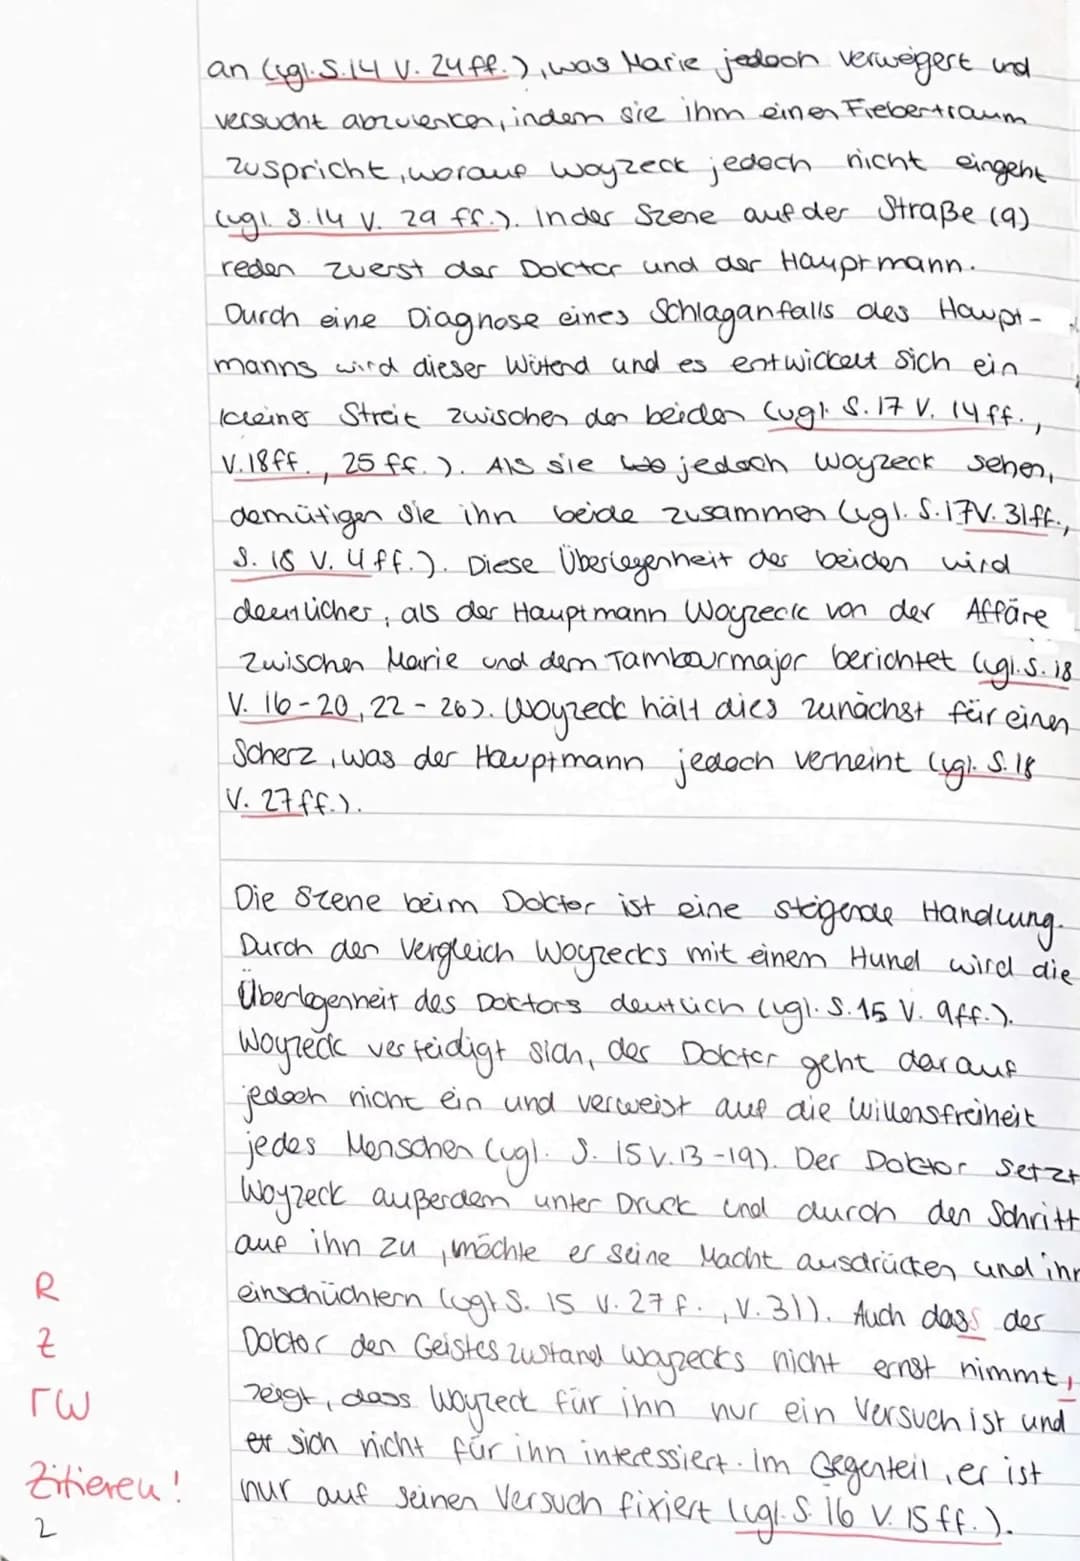 an (vgl. S. 14 V. 24 ff.), was Marie jedoch verweigert und
versucht abzulenken, indem sie ihm einen Fiebertraum
zuspricht, worauf Woyzeck jedoch nicht eingeht
(vgl. S. 14 V. 29 ff.). In der Szene auf der Straße (9)
reden zuerst der Doktor und der Hauptmann.
Durch eine Diagnose eines Schlaganfalls des Haupt-
manns wird dieser Wütend und es entwickelt sich ein
kleiner Streit zwischen den beiden (vgl. S. 17 V. 14 ff.,
V. 18 ff., 25 ff.). Als sie jedoch Woyzeck sehen,
demütigen sie ihn beide zusammen (vgl. S. 17 V. 31 ff.,
S. 18 V. 4 ff.). Diese Überlegenheit der beiden wird
deutlicher, als der Hauptmann Woyzeck von der Affäre
zwischen Marie und dem Tambourmajor berichtet (vgl. S. 18
V. 16 - 20, 22 - 26). Woyzeck hält dies zunächst für einen
Scherz, was der Hauptmann jedoch verneint (vgl. S. 18
V. 27 ff.).
Die Szene beim Doktor ist eine steigende Handlung.
Durch den Vergleich Woyzecks mit einem Hund wird die
Überlegenheit des Doktors deutlich (vgl. S. 15 V. 9 ff.).
Woyzeck verteidigt sich, der Doktor geht darauf
jedoch nicht ein und verweist auf die Willensfreiheit
jedes Menschen (vgl. S. 15 V. 13 - 19). Der Doktor setzt
Woyzeck außerdem unter Druck und durch den Schritt
auf ihn zu, möchte er seine Macht ausdrücken und ihn
R einschüchtern (vgl. S. 15 V. 27 f., V. 31). Auch dass der
Z Doktor den Geisteszustand Woyzecks nicht ernst nimmt,
rW zeigt, dass Woyzeck für ihn nur ein Versuch ist und
er sich nicht für ihn interessiert. Im Gegenteil, er ist
Zitieren! nur auf seinen Versuch fixiert (vgl. S. 16 V. 15 ff.).
2